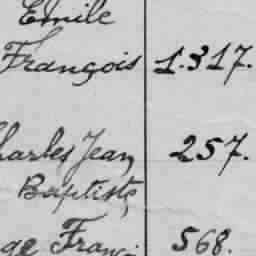 Emile
François 1.317.
harles Jean 257.
Baptiste,
ge Franç 568.